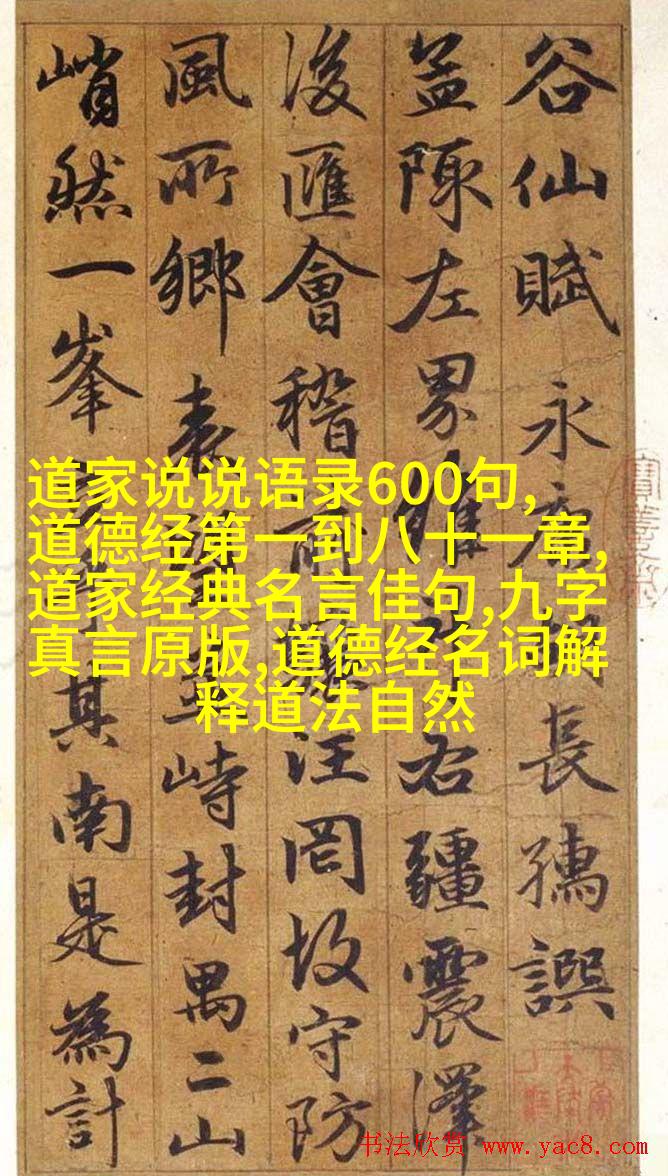 谷仙賦 永康長孺譔
盖陳左界維右疆震澤
後匯會稽前汪罔故守防
風所鄉表峙封禺二山
峭然一峯其南是為計
道家说说语录600句,
道德经第一到八十一章,
道家经典名言佳句,九字
真言原版,道德经名词解
释道法自然
书法欣赏 www.yac8.com